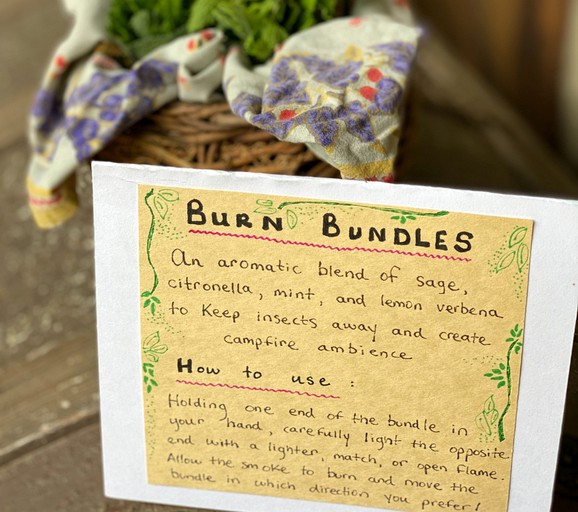 BURN BUNDLES
An aromatic blend of sage,
citronella, mint, and lemon verbena
to Keep insects away and create
campfire ambience
How to use :
Holding one end of the bundle in
your hand, carefully light the opposite
end with a lighter, match, or open flame.
Allow the smoke to burn and move the
bundle in which direction you prefer!